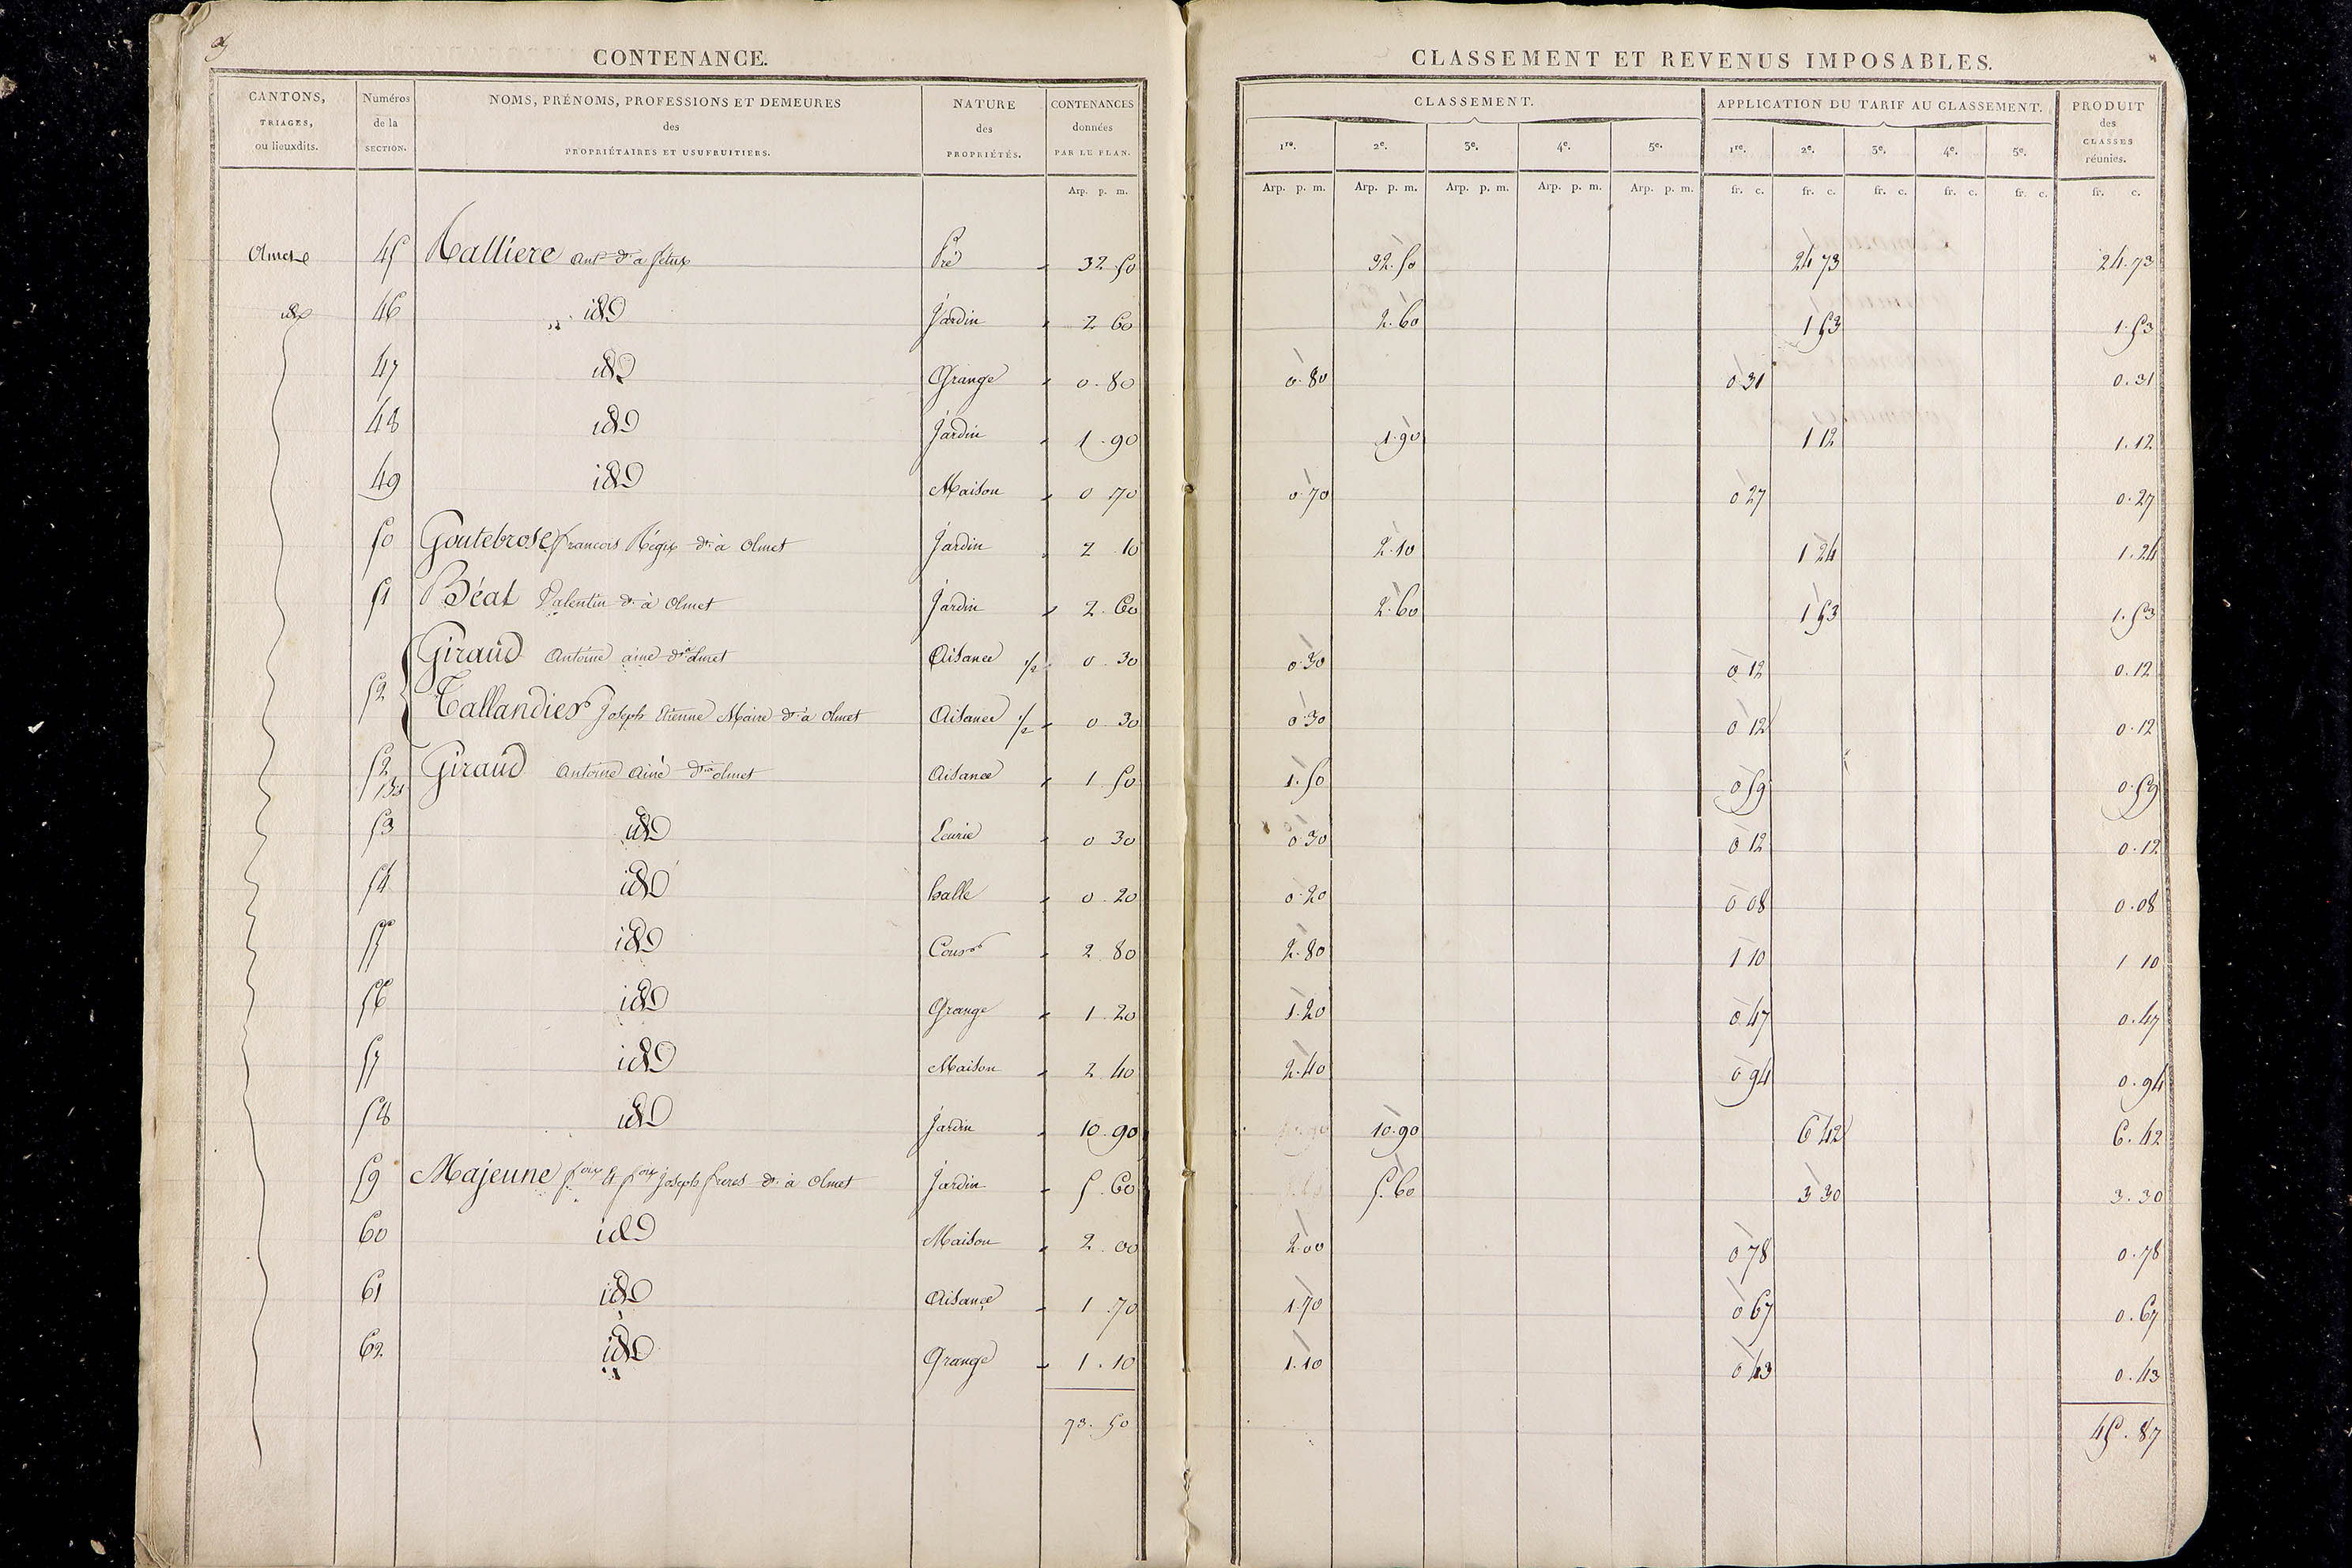 CONTENANCE.
CLASSEMENT ET REVENUS IMPOSABLES.
CANTONS, TRIAGES, ou lieuxdits. Numéros de la SECTION. NOMS, PRÉNOMS, PROFESSIONS ET DEMEURES des PROPRIÉTAIRES ET USUFRUITIERS. NATURE des PROPRIÉTÉS. CONTENANCES données PAR LE PLAN. CLASSEMENT. APPLICATION DU TARIF AU CLASSEMENT. PRODUIT des CLASSES réunies.
1re. 2e. 3e. 4e. 5e. 1re. 2e. 3e. 4e. 5e.
Arp. p. m. Arp. p. m. Arp. p. m. Arp. p. m. Arp. p. m. Arp. p. m. fr. c. fr. c. fr. c. fr. c. fr. c. fr. c.
Olmet 45 Ant. dt. à Pré 32 50 32.50 24 73 24.73
id 46 id Jardin 2 60 2.60 1 53 1.53
47 id Grange 0.80 0.80 0 31 0.31
48 id Jardin 1.90 1.90 1 12 1.12
49 id Maison 0 70 0.70 0 27 0.27
50 Goutebrose francois Régis dt. à Olmet Jardin 2 10 2.10 1 24 1.24
51 Béat Valentin dt. à Olmet Jardin 2.60 2.60 1 53 1.53
52 Giraud Antoine ainé dt. à Olmet Aisance 1/2 0.30 0.30 0 12 0.12
Tallandier Joseph Etienne Maire dt. à Olmet Aisance 1/2 0 30 0.30 0 12 0.12
52 bis Giraud Antoine Ainé dt. à Olmet Aisance 1 50 1.50 0 59 0.59
53 id Ecurie 0 30 0.30 0 12 0.12
54 id halle 0.20 0.20 0 08 0.08
55 id Cour 2.80 2.80 1 10 1 10
56 id Grange 1.20 1.20 0 47 0.47
57 id Maison 2.40 2.40 0 94 0.94
58 id Jardin 10.90 10.90 6 42 6.42
59 Majeune Joseph freres dt. à Olmet Jardin 5.60 5.60 3 30 3.30
60 id Maison 2.00 2.00 0 78 0.78
61 id Aisance 1.70 1.70 0 67 0.67
62 id Grange 1.10 1.10 0 43 0.43
73.50 45.87